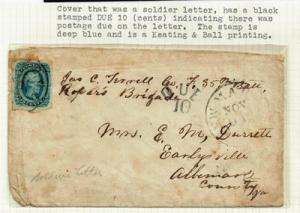 Cover that was a soldier letter, has a black
stamped DUE 10 (cents) indicating there was
postage due on the letter. The stamp is
deep blue and is a Keating & Ball printing.
Jas C. Terrell Co. F, 35th Batt
DUE
10
NOV
Mrs. E. M. Durrett
Earlysville
Albemarle
County
Va
Soldiers Letter